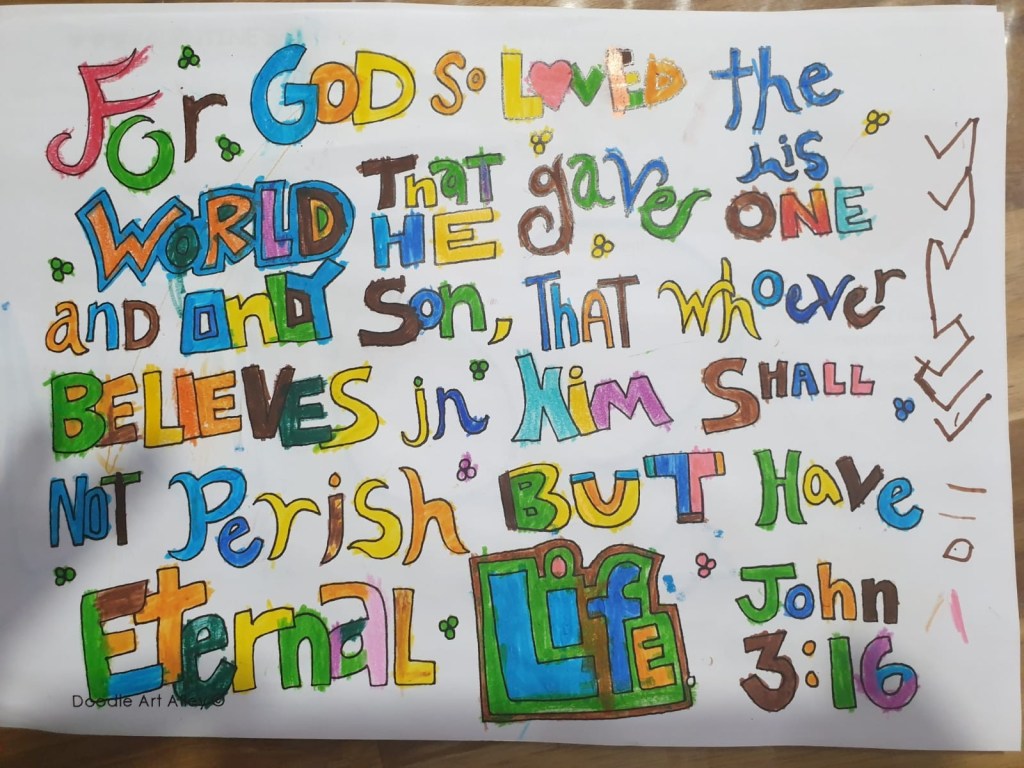 For GOD so LOVED the
WORLD That HE gave his ONE
and ONLY Son, THAT whoever
BELIEVES in Him SHALL
NOT Perish BUT Have
Eternal LiFE John 3:16
Doodle Art Alley ©